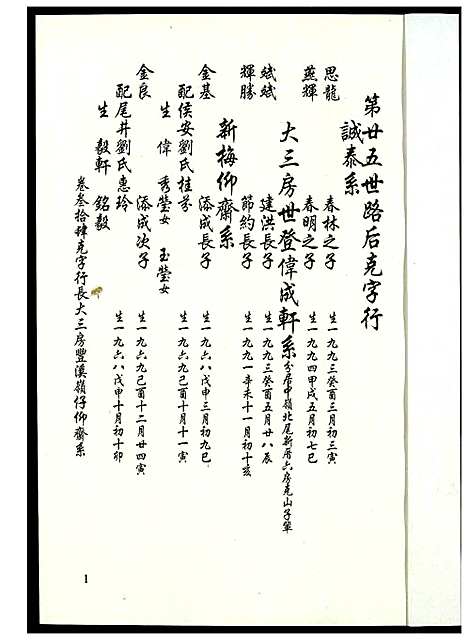 第廿五世路后克字行
誠泰系
思龍 春林之子 生一九九三癸酉三月初三寅
燕輝 春明之子 生一九九四甲戌五月初七巳
大三房世登偉成軒系分居中嶺北尾新厝六房克山子單
斌斌 建洪長子 生一九九三癸酉五月廿八辰
輝勝 節約長子 生一九九一辛未十一月初十亥
新梅仰齋系
金基 添成長子 生一九六八戊申三月初九巳
配侯安劉氏桂芬 生一九六九己酉十月十一寅
生 偉 秀瑩女 玉瑩女
金良 添成次子 生一九六九己酉十二月廿四寅
配尾井劉氏惠玲 生一九六八戊申十月初十卯
生 毅軒 銘毅
卷叁拾肆克字行長大三房豐溪嶺仔仰齋系
1